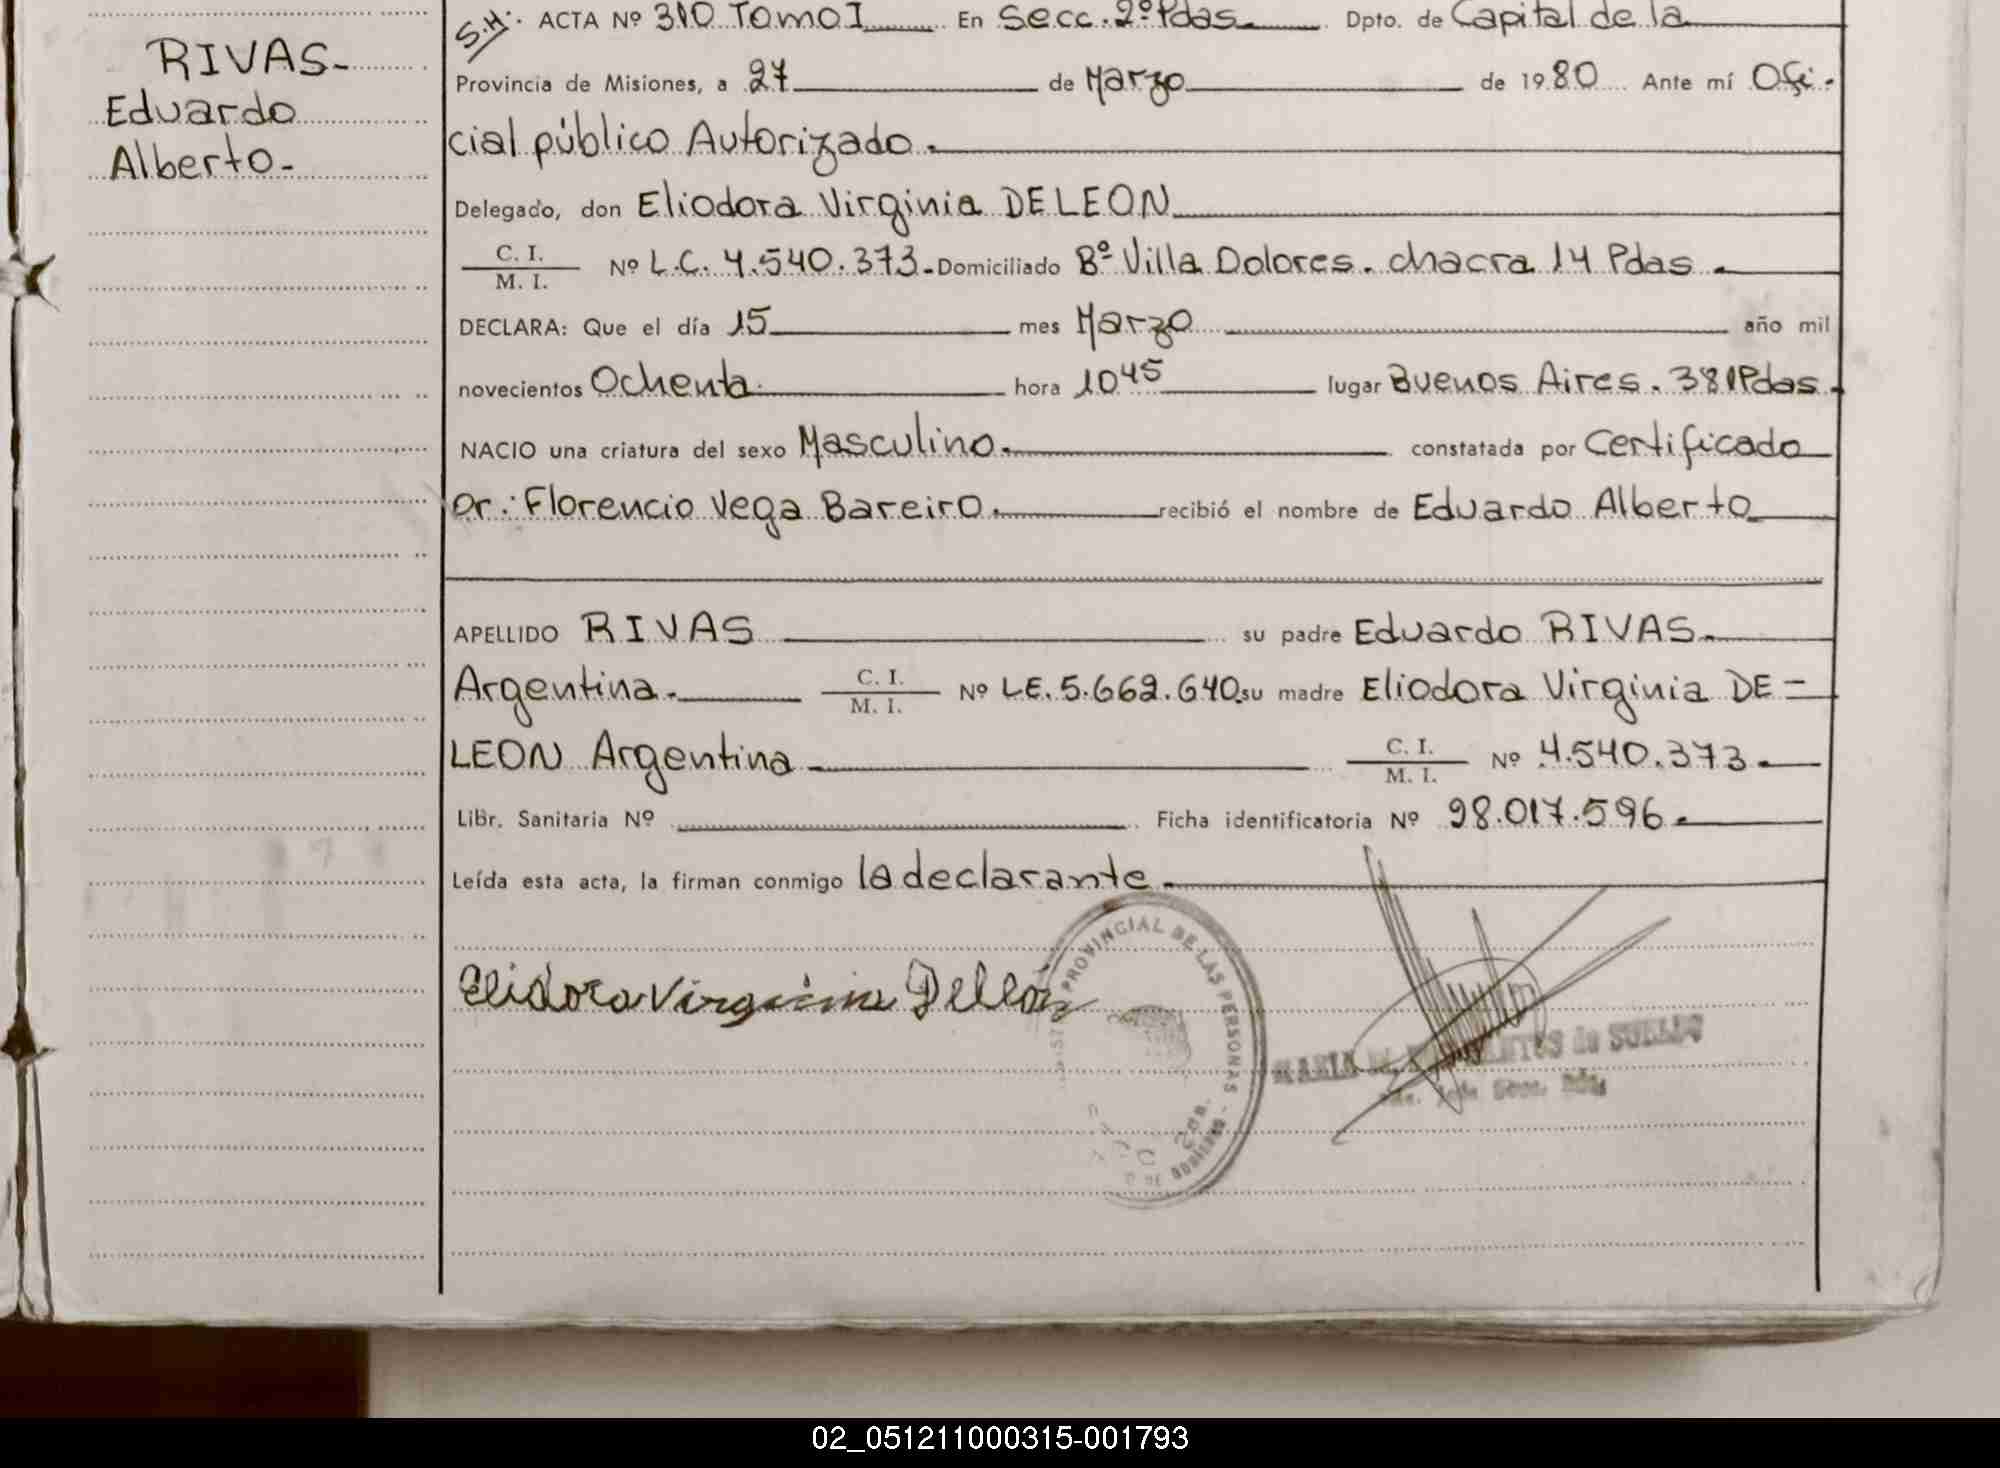 RIVAS-
Eduardo
Alberto-
S.H: ACTA Nº 310 Tomo I En Secc. 2º Pdas. Dpto. de Capital de la
Provincia de Misiones, a 27 de Marzo de 1980 Ante mí Ofi-
cial público Autorizado.
Delegado, don Eliodora Virginia DE LEON
C. I.
M. I. Nº L.C. 4.540.373. Domiciliado Bº Villa Dolores. chacra 14 Pdas.
DECLARA: Que el día 15 mes Marzo año mil
novecientos Ochenta hora 10 45 lugar Buenos Aires. 381 Pdas.
NACIO una criatura del sexo Masculino. constatada por Certificado
Dr: Florencio Vega Bareiro. recibió el nombre de Eduardo Alberto
APELLIDO RIVAS su padre Eduardo RIVAS.
Argentina. C. I.
M. I. Nº LE. 5.662.640. su madre Eliodora Virginia DE-
LEON Argentina C. I.
M. I. Nº 4.540.373.
Libr. Sanitaria Nº Ficha identificatoria Nº 98.017.596.
Leída esta acta, la firman conmigo la declarante.
Elidora Virginia Deleon
PROVINCIAL DE LAS PERSONAS
MARIA de SOELLO
02_051211000315-001793